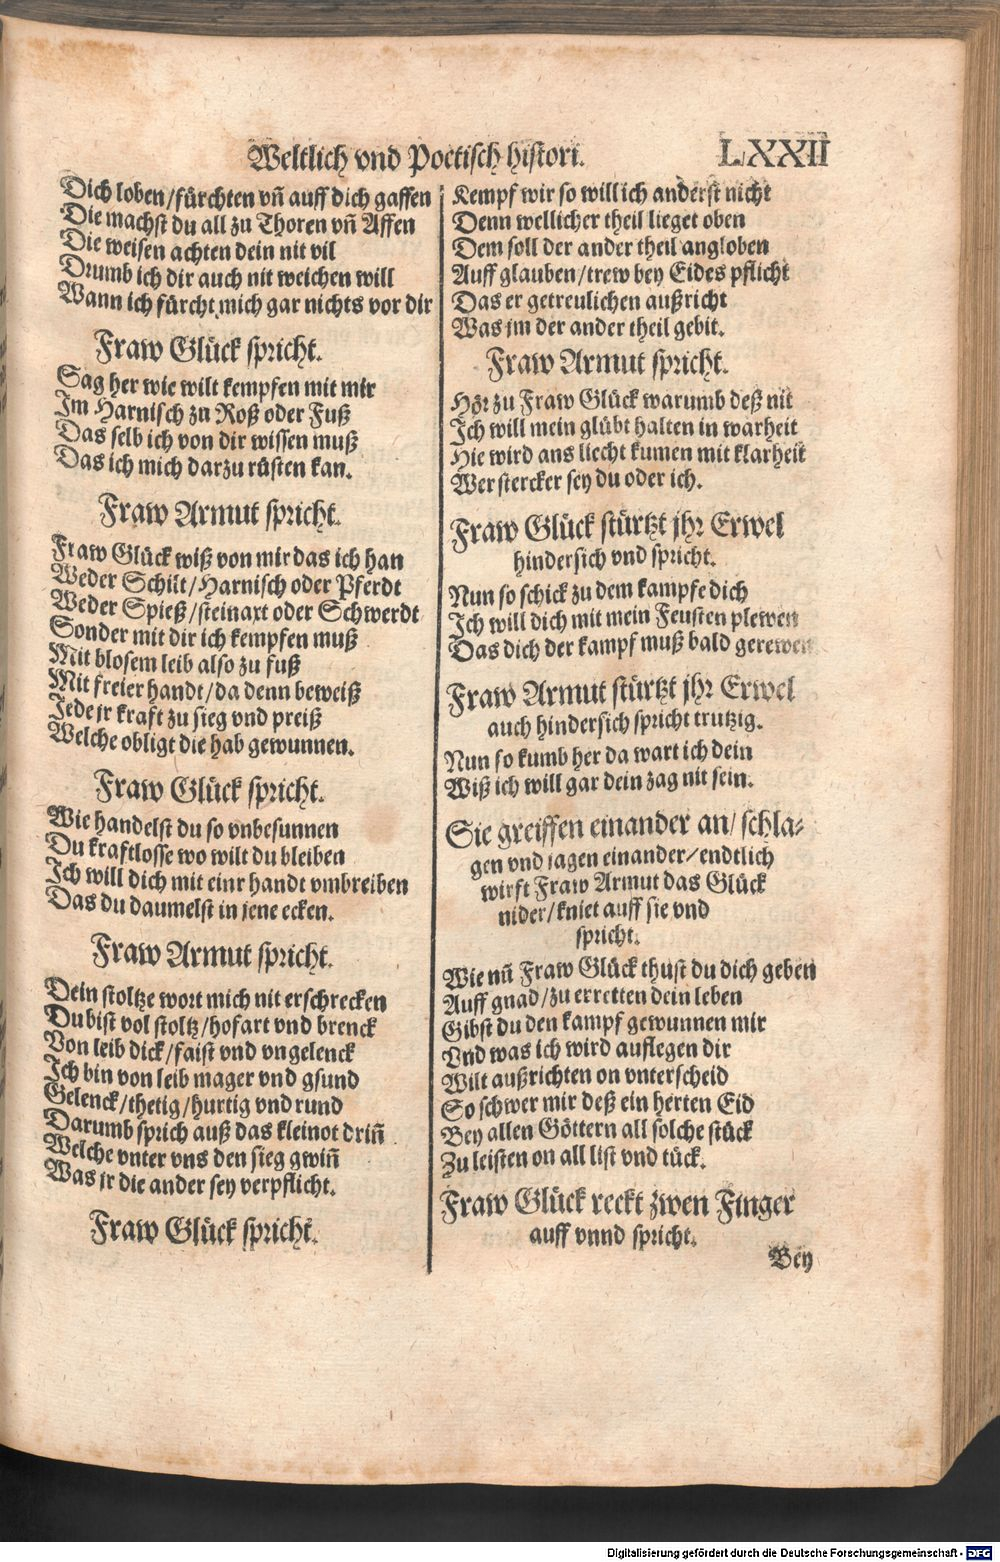 Weltlich vnd Poetisch histori. LXXII
Dich loben/fürchten vñ auff dich gaffen
Die machst du all zu Thoren vñ Affen
Die weisen achten dein nit vil
Drumb ich dir auch nit weichen will
Wann ich fürcht mich gar nichts vor dir
Fraw Glück spricht.
Sag her wie wilt kempfen mit mir
Im Harnisch zu Roß oder Fuß
Das selb ich von dir wissen muß
Das ich mich darzu rüsten kan.
Fraw Armut spricht.
Fraw Glück wiß von mir das ich han
Weder Schilt/Harnisch oder Pferdt
Weder Spieß/steinaxt oder Schwerdt
Sonder mit dir ich kempfen muß
Mit blosem leib also zu fuß
Mit freier handt/da denn beweiß
Jede jr kraft zu sieg vnd preiß
Welche obligt die hab gewunnen.
Fraw Glück spricht.
Wie handelst du so vnbesunnen
Du kraftlosse wo wilt du bleiben
Ich will dich mit einr handt vmbreiben
Das du daumelst in jene ecken.
Fraw Armut spricht.
Dein stoltze wort mich nit erschrecken
Du bist vol stoltz/hofart vnd brenck
Von leib dick/faist vnd vngelenck
Ich bin von leib mager vnd gsund
Gelenck/thetig/hurtig vnd rund
Darumb sprich auß das kleinot driñ
Welche vnter vns den sieg gwiñ
Was jr die ander sey verpflicht.
Fraw Glück spricht.
Kempf wir so will ich anderst nicht
Denn wellicher theil lieget oben
Dem soll der ander theil angloben
Auff glauben/trew bey Eides pflicht
Das er getreulichen außricht
Was jm der ander theil gebit.
Fraw Armut spricht.
Hör zu Fraw Glück warumb deß nit
Ich will mein glübt halten in warheit
Hie wird ans liecht kumen mit klarheit
Wer stercker sey du oder ich.
Fraw Glück stürtzt jhr Erwel
hindersich vnd spricht.
Nun so schick zu dem kampfe dich
Ich will dich mit mein Feusten plewen
Das dich der kampf muß bald gerewen
Fraw Armut stürtzt jhr Erwel
auch hindersich spricht trutzig.
Nun so kumb her da wart ich dein
Wiß ich will gar dein zag nit sein.
Sie greiffen einander an/schla⸗
gen vnd jagen einander/endtlich
wirft Fraw Armut das Glück
nider/kniet auff sie vnd
spricht.
Wie nũ Fraw Glück thust du dich geben
Auff gnad/zu erretten dein leben
Gibst du den kampf gewunnen mir
Vnd was ich wird auflegen dir
Wilt außrichten on vnterscheid
So schwer mir deß ein herten Eid
Bey allen Göttern all solche stück
Zu leisten on all list vnd tück.
Fraw Glück reckt zwen Finger
auff vnnd spricht.
Bey
Digitalisierung gefördert durch die Deutsche Forschungsgemeinschaft - DFG